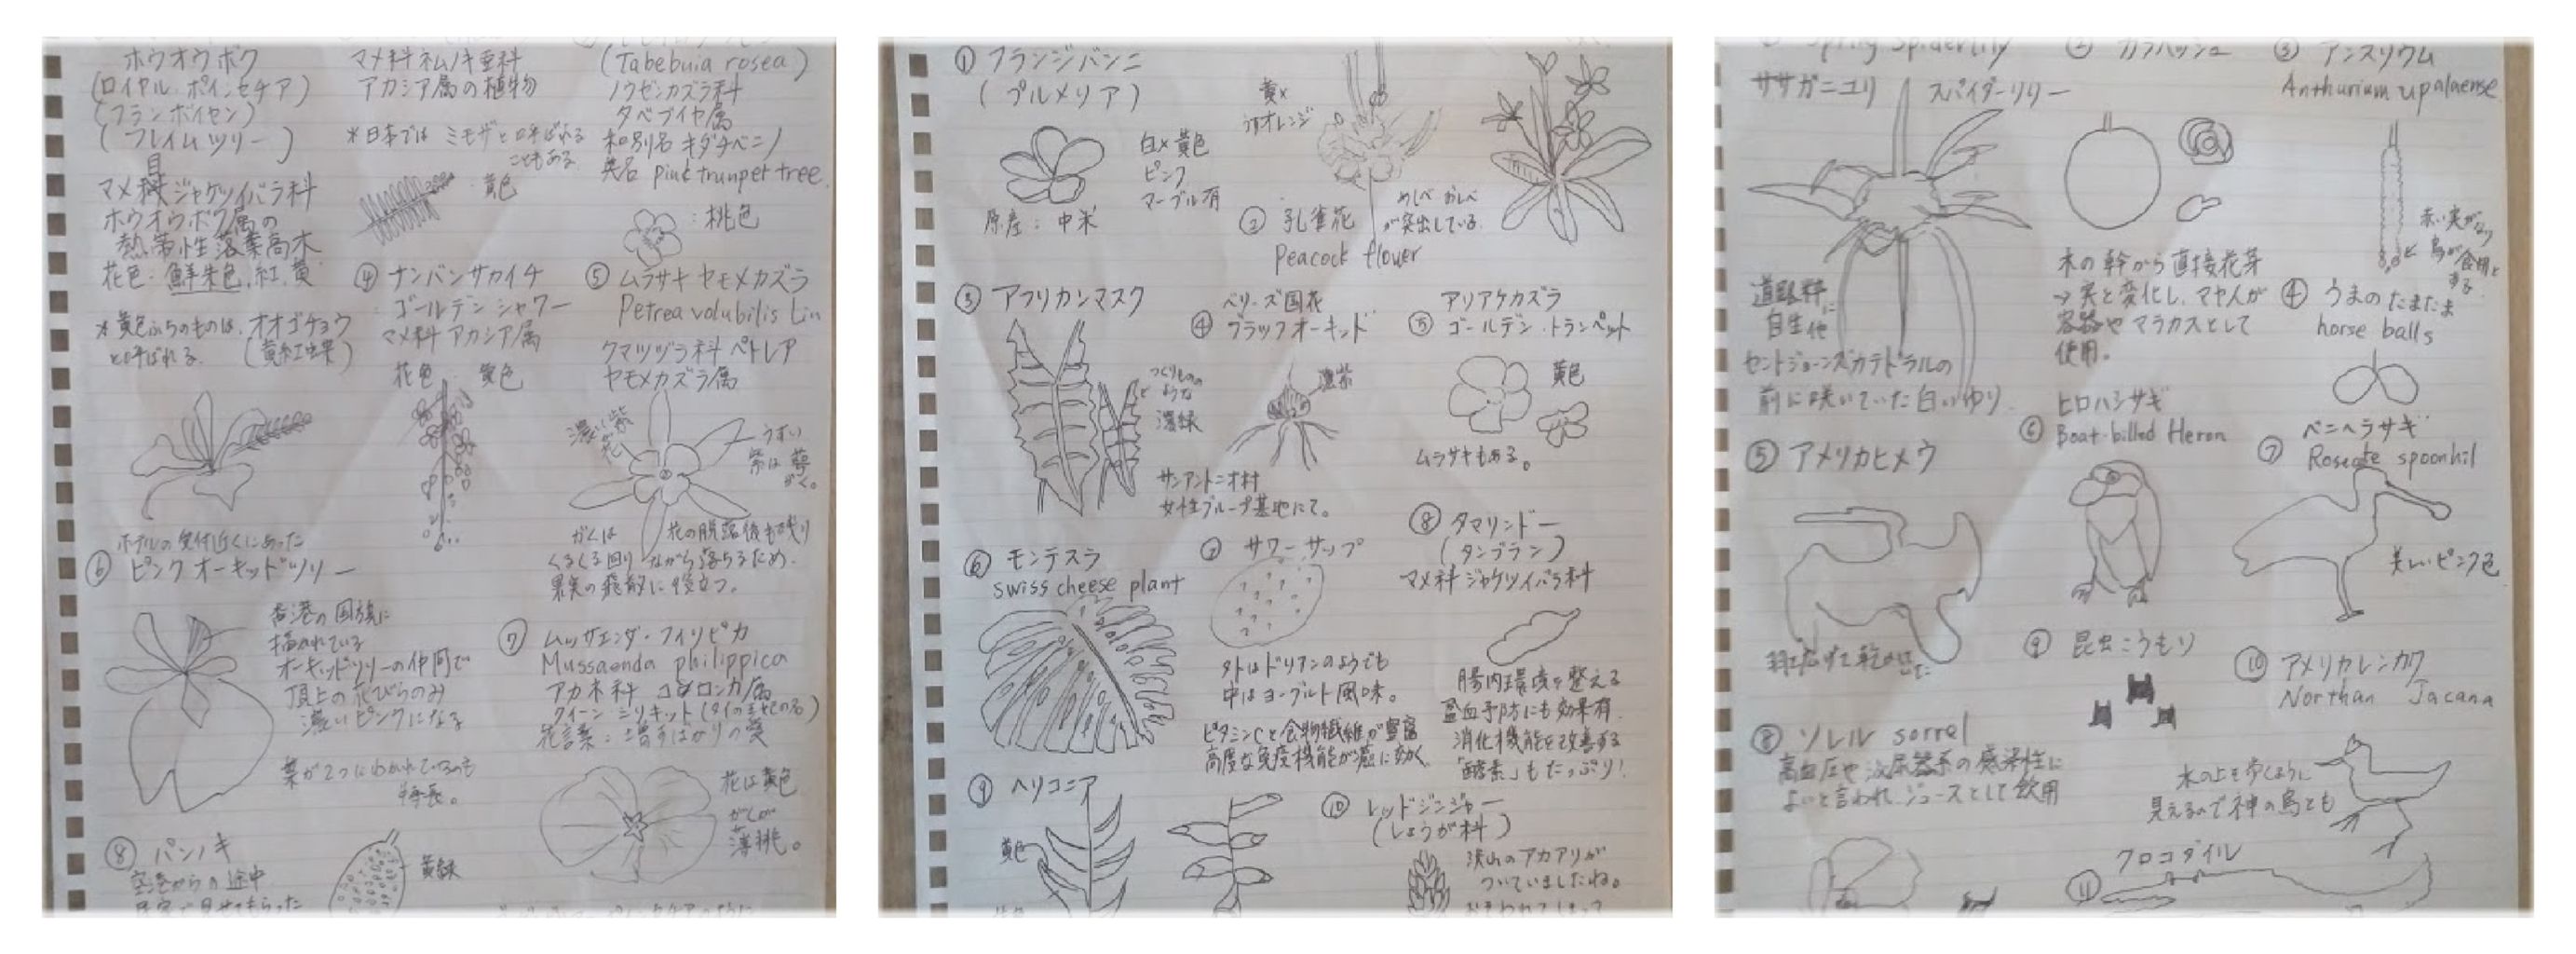 ホウオウボク
(ロイヤル・ポインセチア)
(フランボイセン)
(フレイムツリー)
目
マメ科ジャケツイバラ科
ホウオウボク属の
熱帯性落葉高木
花色:鮮朱色,紅,黄
*黄色ふちのものは,オオゴチョウ
と呼ばれる. (黄紅蝶)
マメ科ネムノキ亜科
アカシア属の植物
*日本では ミモザと呼ばれる
こともある
黄色
(Tabebuia rosea)
ノウゼンカズラ科
タベブイヤ属
和別名 キダチベニノ
英名 pink trunpet tree.
:桃色
④ ナンバンサカイチ
:ゴールデンシャワー
マメ科 アカシア属
花色:黄色
⑤ ムラサキヤモメカズラ
Petrea volubilis Lin
クマツヅラ科 ペトレア
ヤモメカズラ属
濃い紫
花
うすい
紫は萼
がく。
がくは 花の脱落後も残り
くるくる回りながら落ちるため.
果実の飛散に役立つ。
ホテルの受付近くにあった
⑥ ピンクオーキッドツリー
香港の国旗に
描かれている
オーキッドツリーの仲間で
頂上の花びらのみ
濃いピンクになる
葉が2つにわかれているのも
特長。
⑦ ムッサエンダ・フィリピカ
Mussaenda philippica
アカネ科 コンロンカ属
クイーン シリキット(タイの王妃の名)
花言葉:増すばかりの愛
花は黄色
がくが
薄桃。
⑧ パンノキ
空港からの途中
黄緑
① フランジパンニ
(プルメリア)
白×黄色
ピンク
マーブル有
原産:中米
黄×
うすオレンジ
② 孔雀花
Peacock flower
めしべ おしべ
が突出している.
③ アフリカンマスク
つくりものの
ような
濃緑
ベリーズ国花
④ ブラックオーキッド
濃紫
サンアントニオ村
女性グループ基地にて。
アリアケカズラ
⑤ ゴールデン・トランペット
黄色
ムラサキもある。
⑥ モンテスラ
swiss cheese plant
⑦ サワーサップ
外はドリアンのようでも
中はヨーグルト風味。
ビタミンCと食物繊維が豊富
高度な免疫機能が癌に効く。
⑧ タマリンドー
(タンブラン)
マメ科ジャケツイバラ科
腸内環境を整える
貧血予防にも効果有.
消化機能を改善する
「酵素」もたっぷり!
⑨ ヘリコニア
黄色
⑩ レッドジンジャー
(しょうが科)
沢山のアカアリが
ついていましたね。
① Spring Spiderlily
ササガニユリ スパイダーリリー
道路絆に
自生他
セントジョーンズカテドラルの
前に咲いていた白いゆり
② カラバッシュ
木の幹から直接花芽
→実と変化し、マヤ人が
容器やマラカスとして
使用。
③ アンスリウム
Anthurium upalaense
赤い実がなり
鳥が食用と
する.
④ うまのたまたま
horse balls
⑤ アメリカヒメウ
羽を広げて乾かした
ヒロハシサギ
⑥ Boat-billed Heron
ベニヘラサギ
⑦ Roseate spoonbil
美しいピンク色
⑧ ソレル sorrel
高血圧や泌尿器系の感染性に
よいと言われ.ジュースとして飲用
⑨ 昆虫こうもり
⑩ アメリカレンカク
Northan Jacana
水の上を歩くように
見えるので神の鳥とも
⑪ クロコダイル